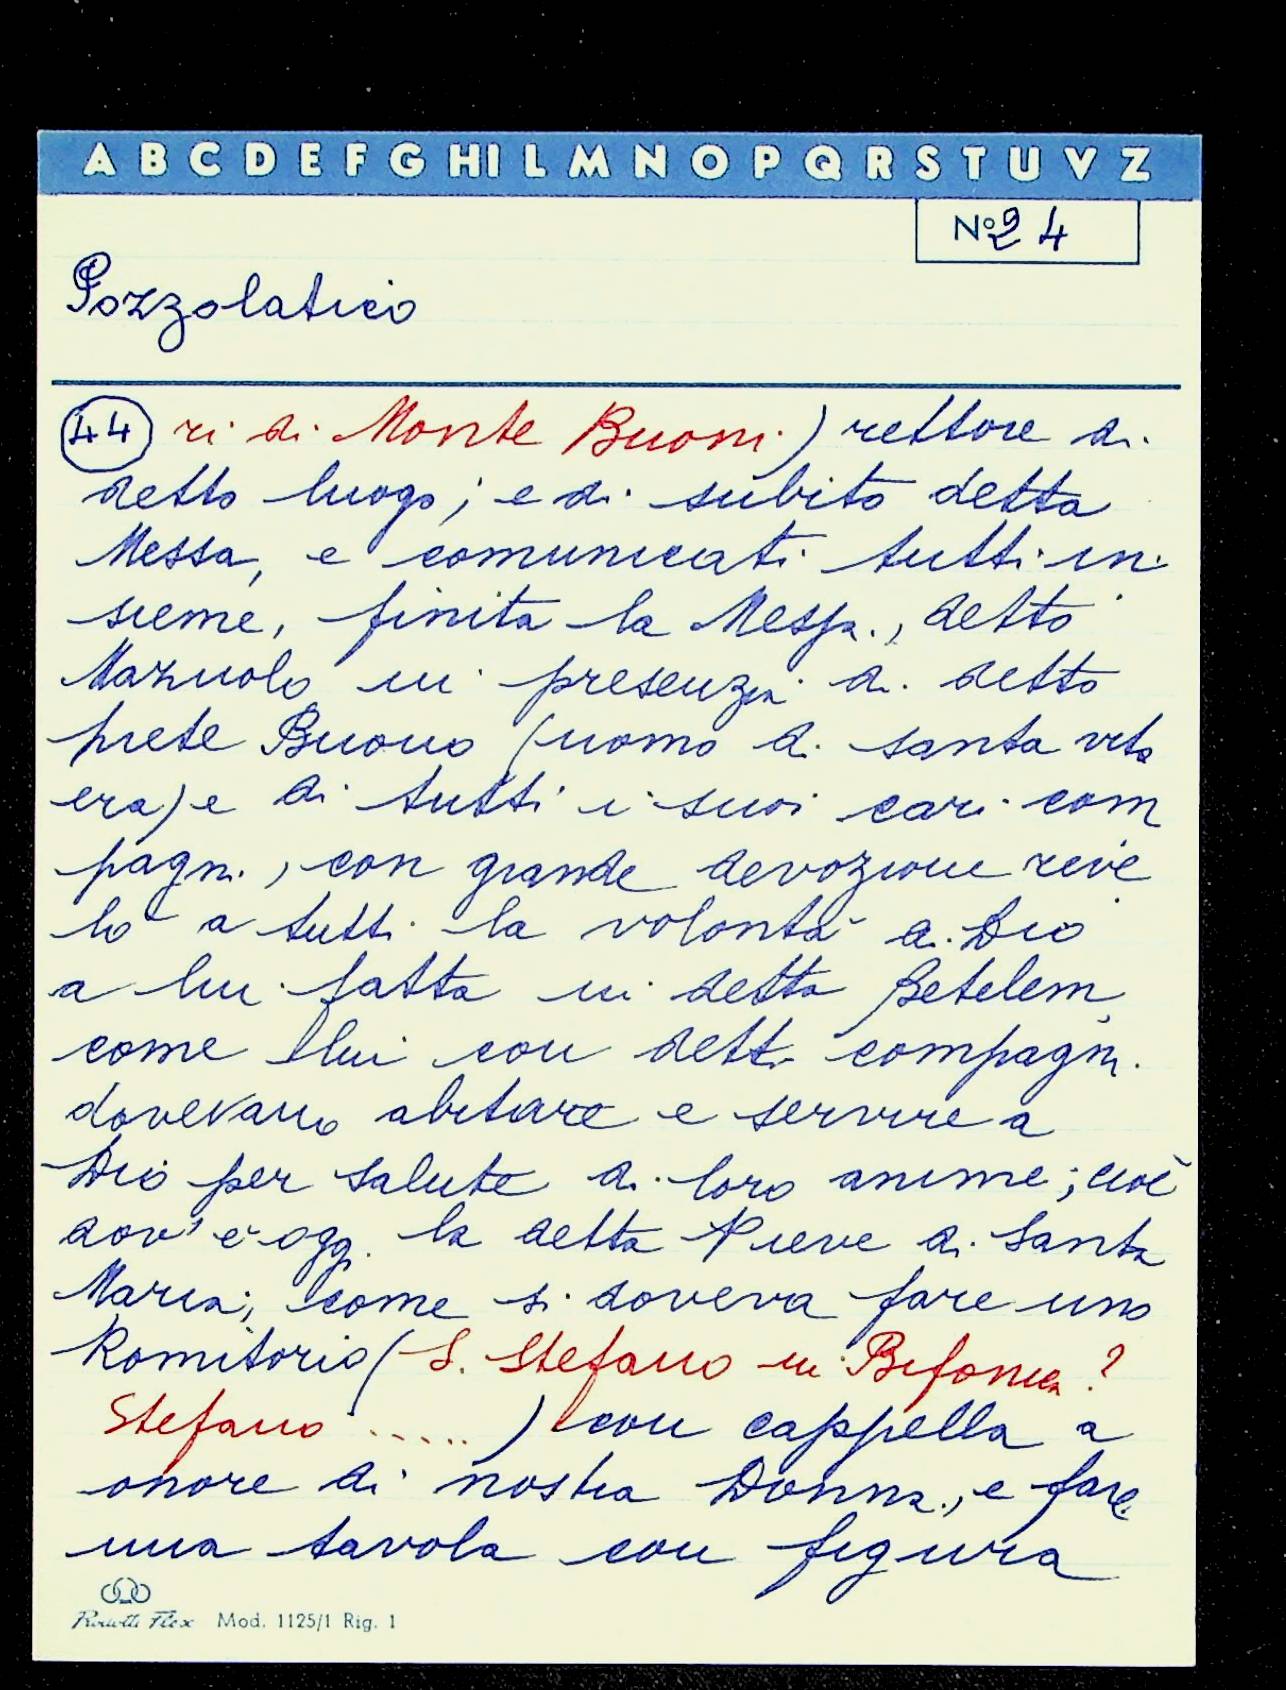 A B C D E F G H I L M N O P Q R S T U V Z
Nº 24
Pozzolatico
44 ri di Monte Buoni) rettore di
detto luogo; e di subito detta
Messa, e comunicati tutti in
sieme, finita la Messa, detto
Mazuolo in presenzia di detto
prete Buono (uomo di santa vita
era) e di tutti i suoi cari com
pagni, con grande devozione rive
lò a tutti la volontà di Dio
a lui fatta in detta Betelem,
come lui con detti compagni
dovevano abitare e servire a
Dio per salute di loro anime; cioè
dov'è oggi la detta Pieve di Santa
Maria; come si doveva fare uno
Romitorio (S. Stefano in Bifonica?
Stefano .....) con cappella a
onore di nostra Donna, e fare
una tavola con figura
Mod. 1125/1 Rig. 1